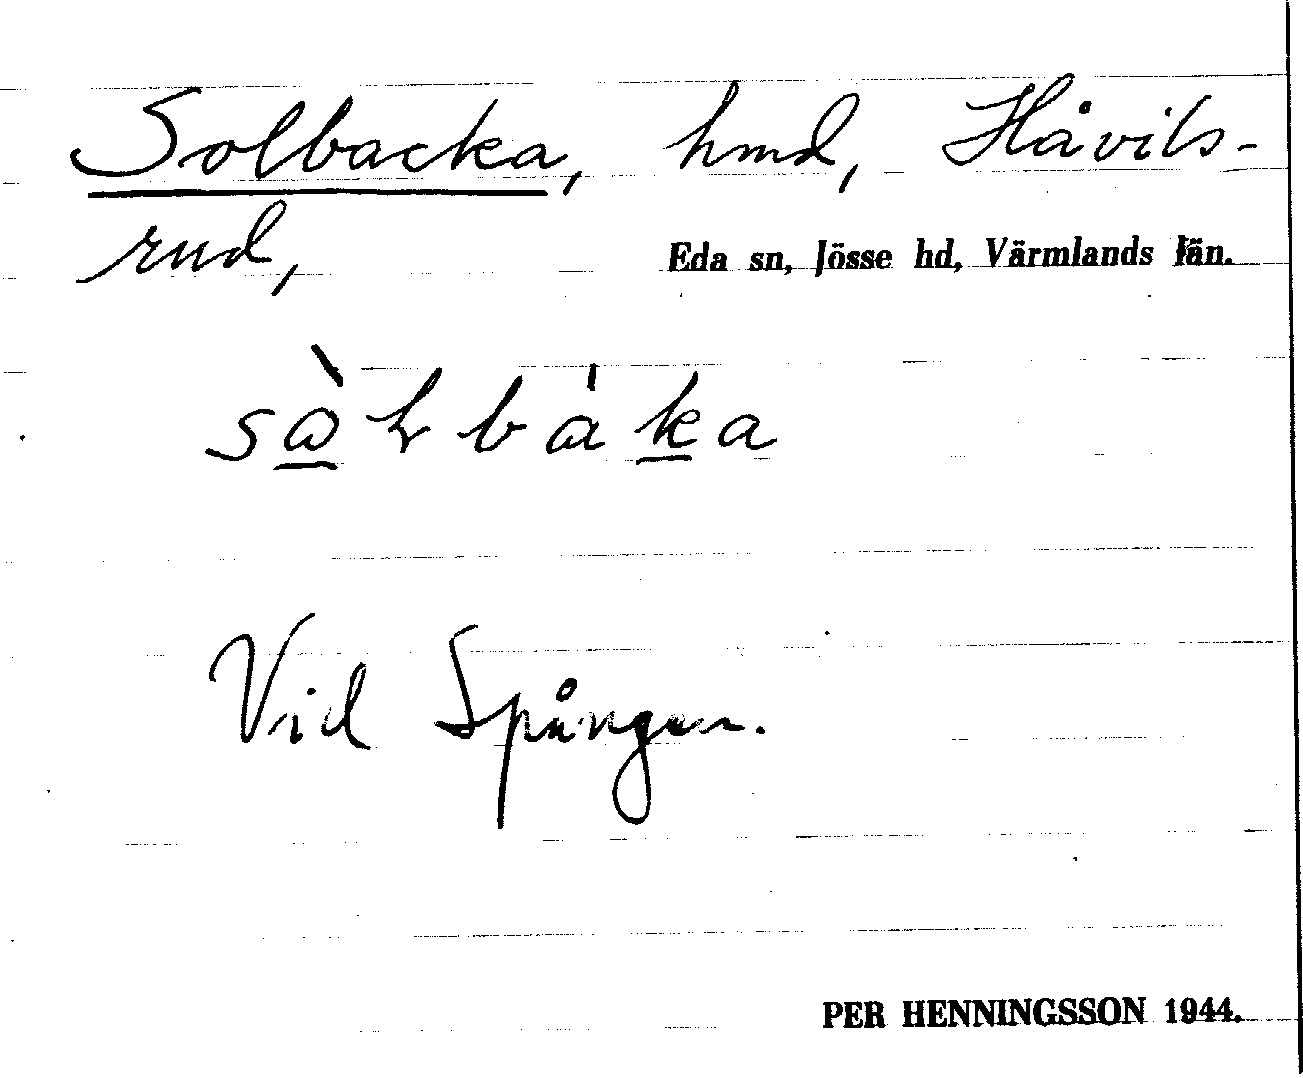 Solbacka, hmd, Håvils-
rud, Eda sn, Jösse hd, Värmlands län.
Vid Spången.
PER HENNINGSSON 1944.